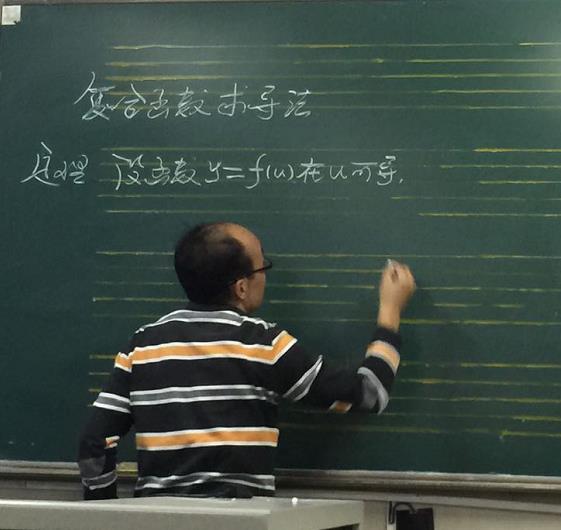 复合函数求导法
定理 设函数y=f(u)在u可导,